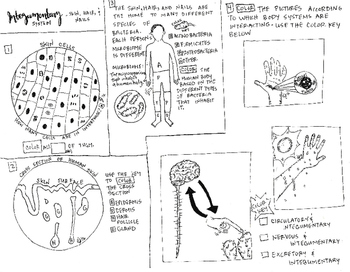 Integumentary
SYSTEM
SKIN, HAIR, &
NAILS
1
SKIN CELLS
COLOR
OF THEM.
2
CROSS SECTION OF HUMAN SKIN
SKIN SURFACE
USE THE KEY
TO COLOR
THE CROSS
SECTION
EPIDERMIS
DERMIS
HAIR
FOLLICLE
GLAND
3
THE SKIN, HAIR AND NAILS ARE
THE HOME TO MANY DIFFERENT
SPECIES OF
BACTERIA.
EACH PERSON'S
MICROBIOME
IS DIFFERENT
ACTINOBACTERIA
FIRMICUTES
PROTEOBACTERIA
OTHER
COLOR THE
HUMAN BODY
BASED ON THE
DIFFERENT TYPES
OF BACTERIA
THAT INHABIT
IT.
A
P
F
4
COLOR THE PICTURES ACCORDING
TO WHICH BODY SYSTEMS ARE
INTERACTING - USE THE COLOR KEY
BELOW
COLOR KEY
CIRCULATORY &
INTEGUMENTARY
NERVOUS &
INTEGUMENTARY
EXCRETORY &
INTEGUMENTARY